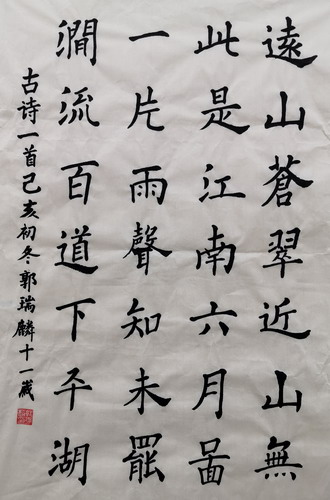 遠山蒼翠近山無
此是江南六月啚
一片雨聲知未罷
澗流百道下平湖
古诗一首己亥初冬郭瑞麟十一歲